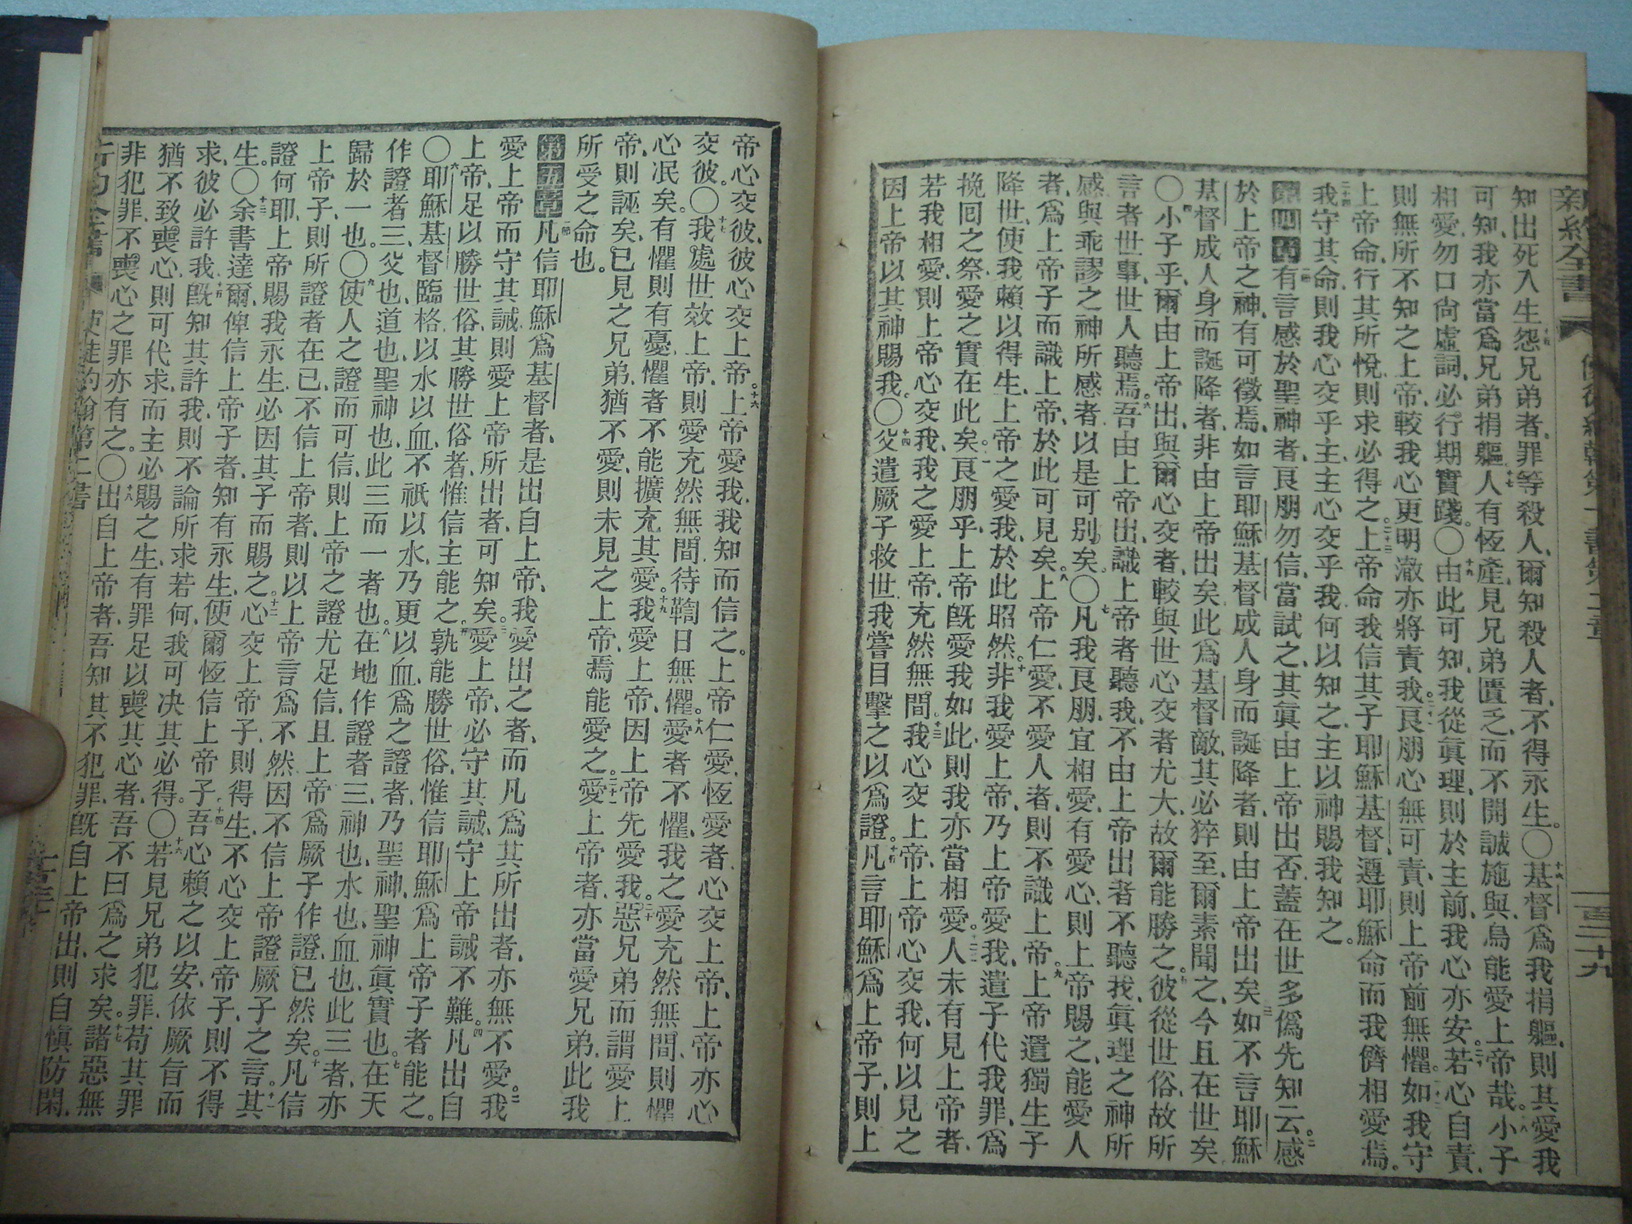 新約全書
使徒約翰第一書第三章
一百三十九
知出死入生、怨兄弟者、罪等殺人、爾知殺人者、不得永生。〇基督爲我捐軀、則其愛我
可知、我亦當爲兄弟捐軀、人有恆產、見兄弟匱乏、而不開誠施與、烏能愛上帝哉。小子
相愛、勿口尙虛詞、必行期實踐。〇由此可知、我從眞理、則於主前、我心亦安、若心自責、
則無所不知之上帝、較我心更明澈、亦將責我。良朋、心無可責、則上帝前無懼、如我守
上帝命、行其所悅、則求必得之。上帝命我信其子耶穌基督、遵耶穌命、而我儕相愛焉。
我守其命、則我心交乎主、主心交乎我、何以知之、主以神賜我知之。
第四章 有言感於聖神者、良朋勿信、當試之、其眞由上帝出否、蓋在世多僞先知云。感
於上帝之神、有可徵焉、如言耶穌基督成人身而誕降者、則由上帝出矣、如不言耶穌
基督成人身而誕降者、非由上帝出矣、此爲基督敵、其必猝至、爾素聞之、今且在世矣
〇小子乎、爾由上帝出、與爾心交者、較與世心交者尤大、故爾能勝之。彼從世俗、故所
言者世事、世人聽焉。吾由上帝出、識上帝者聽我、不由上帝出者不聽我、眞理之神所
感、與乖謬之神所感者、以是可別矣。〇凡我良朋、宜相愛、有愛心、則上帝賜之、能愛人
者、爲上帝子而識上帝、於此可見矣。上帝仁愛、不愛人者、則不識上帝。上帝遣獨生子
降世、使我賴以得生、上帝之愛我、於此昭然。非我愛上帝、乃上帝愛我、遣子代我罪、爲
挽回之祭、愛之實在此矣。良朋乎、上帝旣愛我如此、則我亦當相愛。人未有見上帝者、
若我相愛、則上帝心交我、我之愛上帝、充然無間。我心交上帝、上帝心交我、何以見之
因上帝以其神賜我。〇父遣厥子救世、我嘗目擊之以爲證。凡言耶穌爲上帝子、則上
帝心交彼、彼心交上帝。上帝愛我、我知而信之。上帝仁愛、恆愛者心交上帝、上帝亦心
交彼。〇我處世效上帝、則愛充然無間、待鞫日無懼。愛者不懼、我之愛充然無間、則懼
心泯矣。有懼則有憂、懼者不能擴充其愛。我愛上帝、因上帝先愛我。惡兄弟而謂愛上
帝、則誣矣、已見之兄弟、猶不愛、則未見之上帝、焉能愛之。愛上帝者、亦當愛兄弟、此我
所受之命也。
第五章 凡信耶穌爲基督者、是出自上帝、我愛出之者、而凡爲其所出者、亦無不愛。我
愛上帝而守其誡、則愛上帝所出者、可知矣。愛上帝、必守其誡、守上帝誡不難。凡出自
上帝、足以勝世俗、其勝世俗者、惟信主能之。孰能勝世俗、惟信耶穌爲上帝子者能之。
〇耶穌基督臨格以水以血、不祇以水、乃更以血、爲之證者、乃聖神、聖神眞實也。在天
作證者三、父也、道也、聖神也、此三而一者也。在地作證者三、神也、水也、血也、此三者、亦
歸於一也。〇使人之證而可信、則上帝之證尤足信、且上帝爲厥子作證已然矣。凡信
上帝子、則所證者在已、不信上帝者、則以上帝言爲不然、因不信上帝證厥子之言。其
證何耶、上帝賜我永生、必因其子而賜之。心交上帝子、則得生、不心交上帝子、則不得
生。〇余書達爾、俾信上帝子者、知有永生、使爾恆信上帝子。吾心賴之以安、依厥旨而
求、彼必許我、旣知其許我、則不論所求若何、我可决其必得。〇若見兄弟犯罪、苟其罪
猶不致喪心、則可代求、而主必賜之生、有罪足以喪其心者、吾不曰爲之求矣。諸惡無
非犯罪、不喪心之罪亦有之。〇出自上帝者、吾知其不犯罪、旣自上帝出、則自愼防閑、